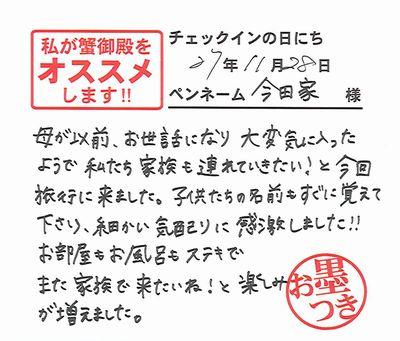 私が蟹御殿を
オススメ
します!!
チェックインの日にち
27年11月28日
ペンネーム 今田家 様
母が以前、お世話になり 大変気に入った
ようで 私たち 家族も 連れていきたい!と 今回
旅行に来ました。子供たちの名前もすぐに覚えて
下さり、細かい 気配りに 感激しました!!
お部屋もお風呂も ステキで
また 家族で 来たいね!と 楽しみ
が増えました。
お墨つき